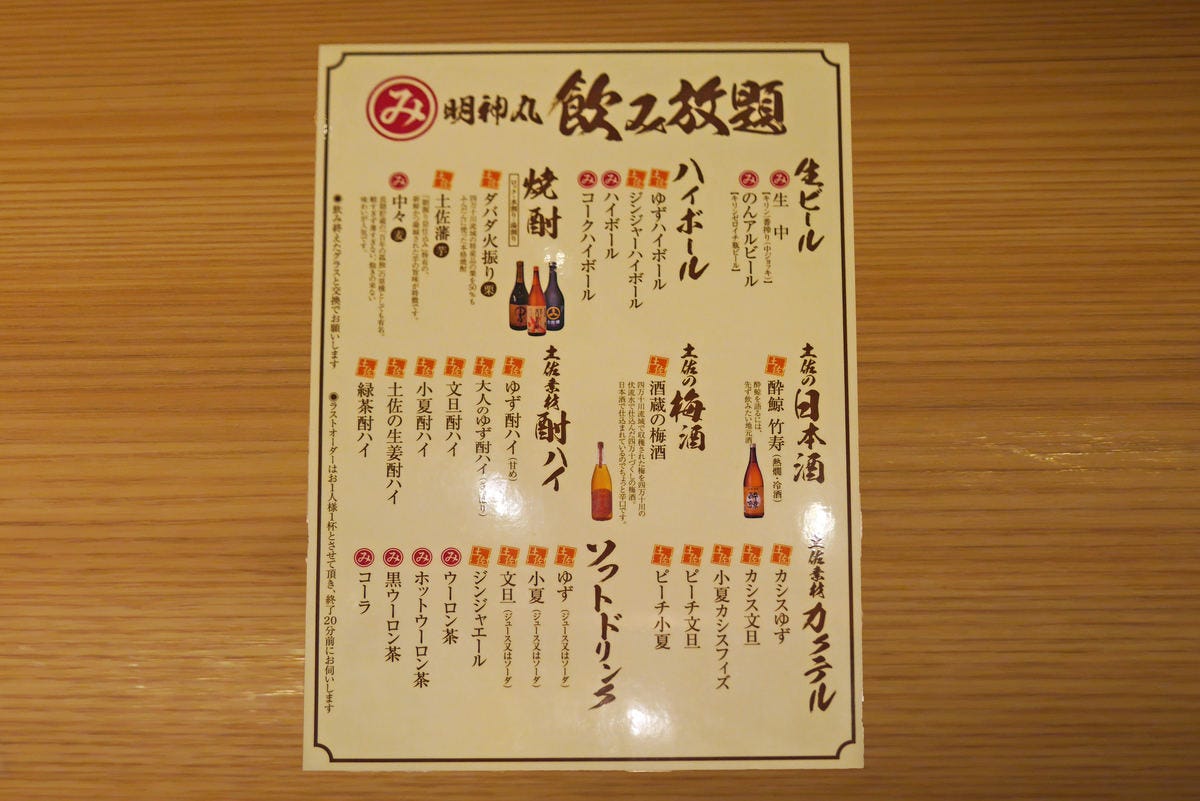 み 明神丸 飲み放題
生ビール
み 生 中
【キリン一番搾り(中ジョッキ)】
み のんアルビール
【キリンゼロイチ瓶ビール】
ハイボール
土佐 ゆずハイボール
土佐 ジンジャーハイボール
み ハイボール
み コークハイボール
焼酎
ロック・水割り・湯割り
土佐 ダバダ火振り 栗
四万十川流域の特産品の栗を50%も
ふんだんに使った本格焼酎
土佐 土佐藩 芋
み 中々 麦
土佐の日本酒
土佐 酔鯨 竹寿 (熱燗・冷酒)
酔鯨を語るには、
先ず飲みたい地元酒。
土佐の梅酒
土佐 酒蔵の梅酒
四万十川流域で収穫された梅を四万十川の
伏流水で仕込んだ四万十づくしの梅酒。
日本酒で仕込まれているのでちょっと辛口です。
土佐素材 酎ハイ
土佐 ゆず酎ハイ (甘め)
土佐 大人のゆず酎ハイ
土佐 文旦酎ハイ
土佐 小夏酎ハイ
土佐 土佐の生姜酎ハイ
土佐 緑茶酎ハイ
土佐素材 カクテル
土佐 カシスゆず
土佐 カシス文旦
土佐 小夏カシスフィズ
土佐 ピーチ文旦
土佐 ピーチ小夏
ソフトドリンク
土佐 ゆず (ジュース又はソーダ)
土佐 小夏 (ジュース又はソーダ)
土佐 文旦 (ジュース又はソーダ)
土佐 ジンジャエール
み ウーロン茶
み ホットウーロン茶
み 黒ウーロン茶
み コーラ
●飲み終えたグラスと交換でお願いします
●ラストオーダーはお1人様1杯とさせて頂き、終了20分前にお伺いします